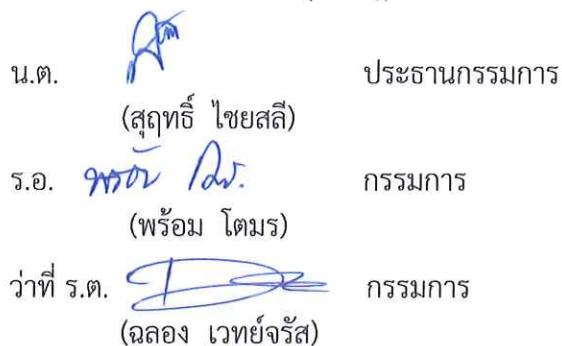 น.ต. ประธานกรรมการ
(สุฤทธิ์ ไชยสลี)
ร.อ. พร้อม กรรมการ
(พร้อม โตมร)
ว่าที่ ร.ต. กรรมการ
(ฉลอง เวทย์จรัส)